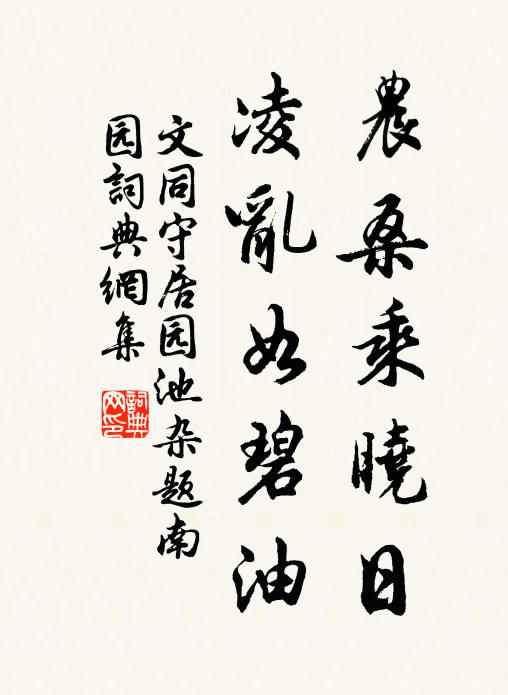 農桑乘曉日
凌亂如碧油
文同守居园池杂题南
园詞典網集
詞典
网印